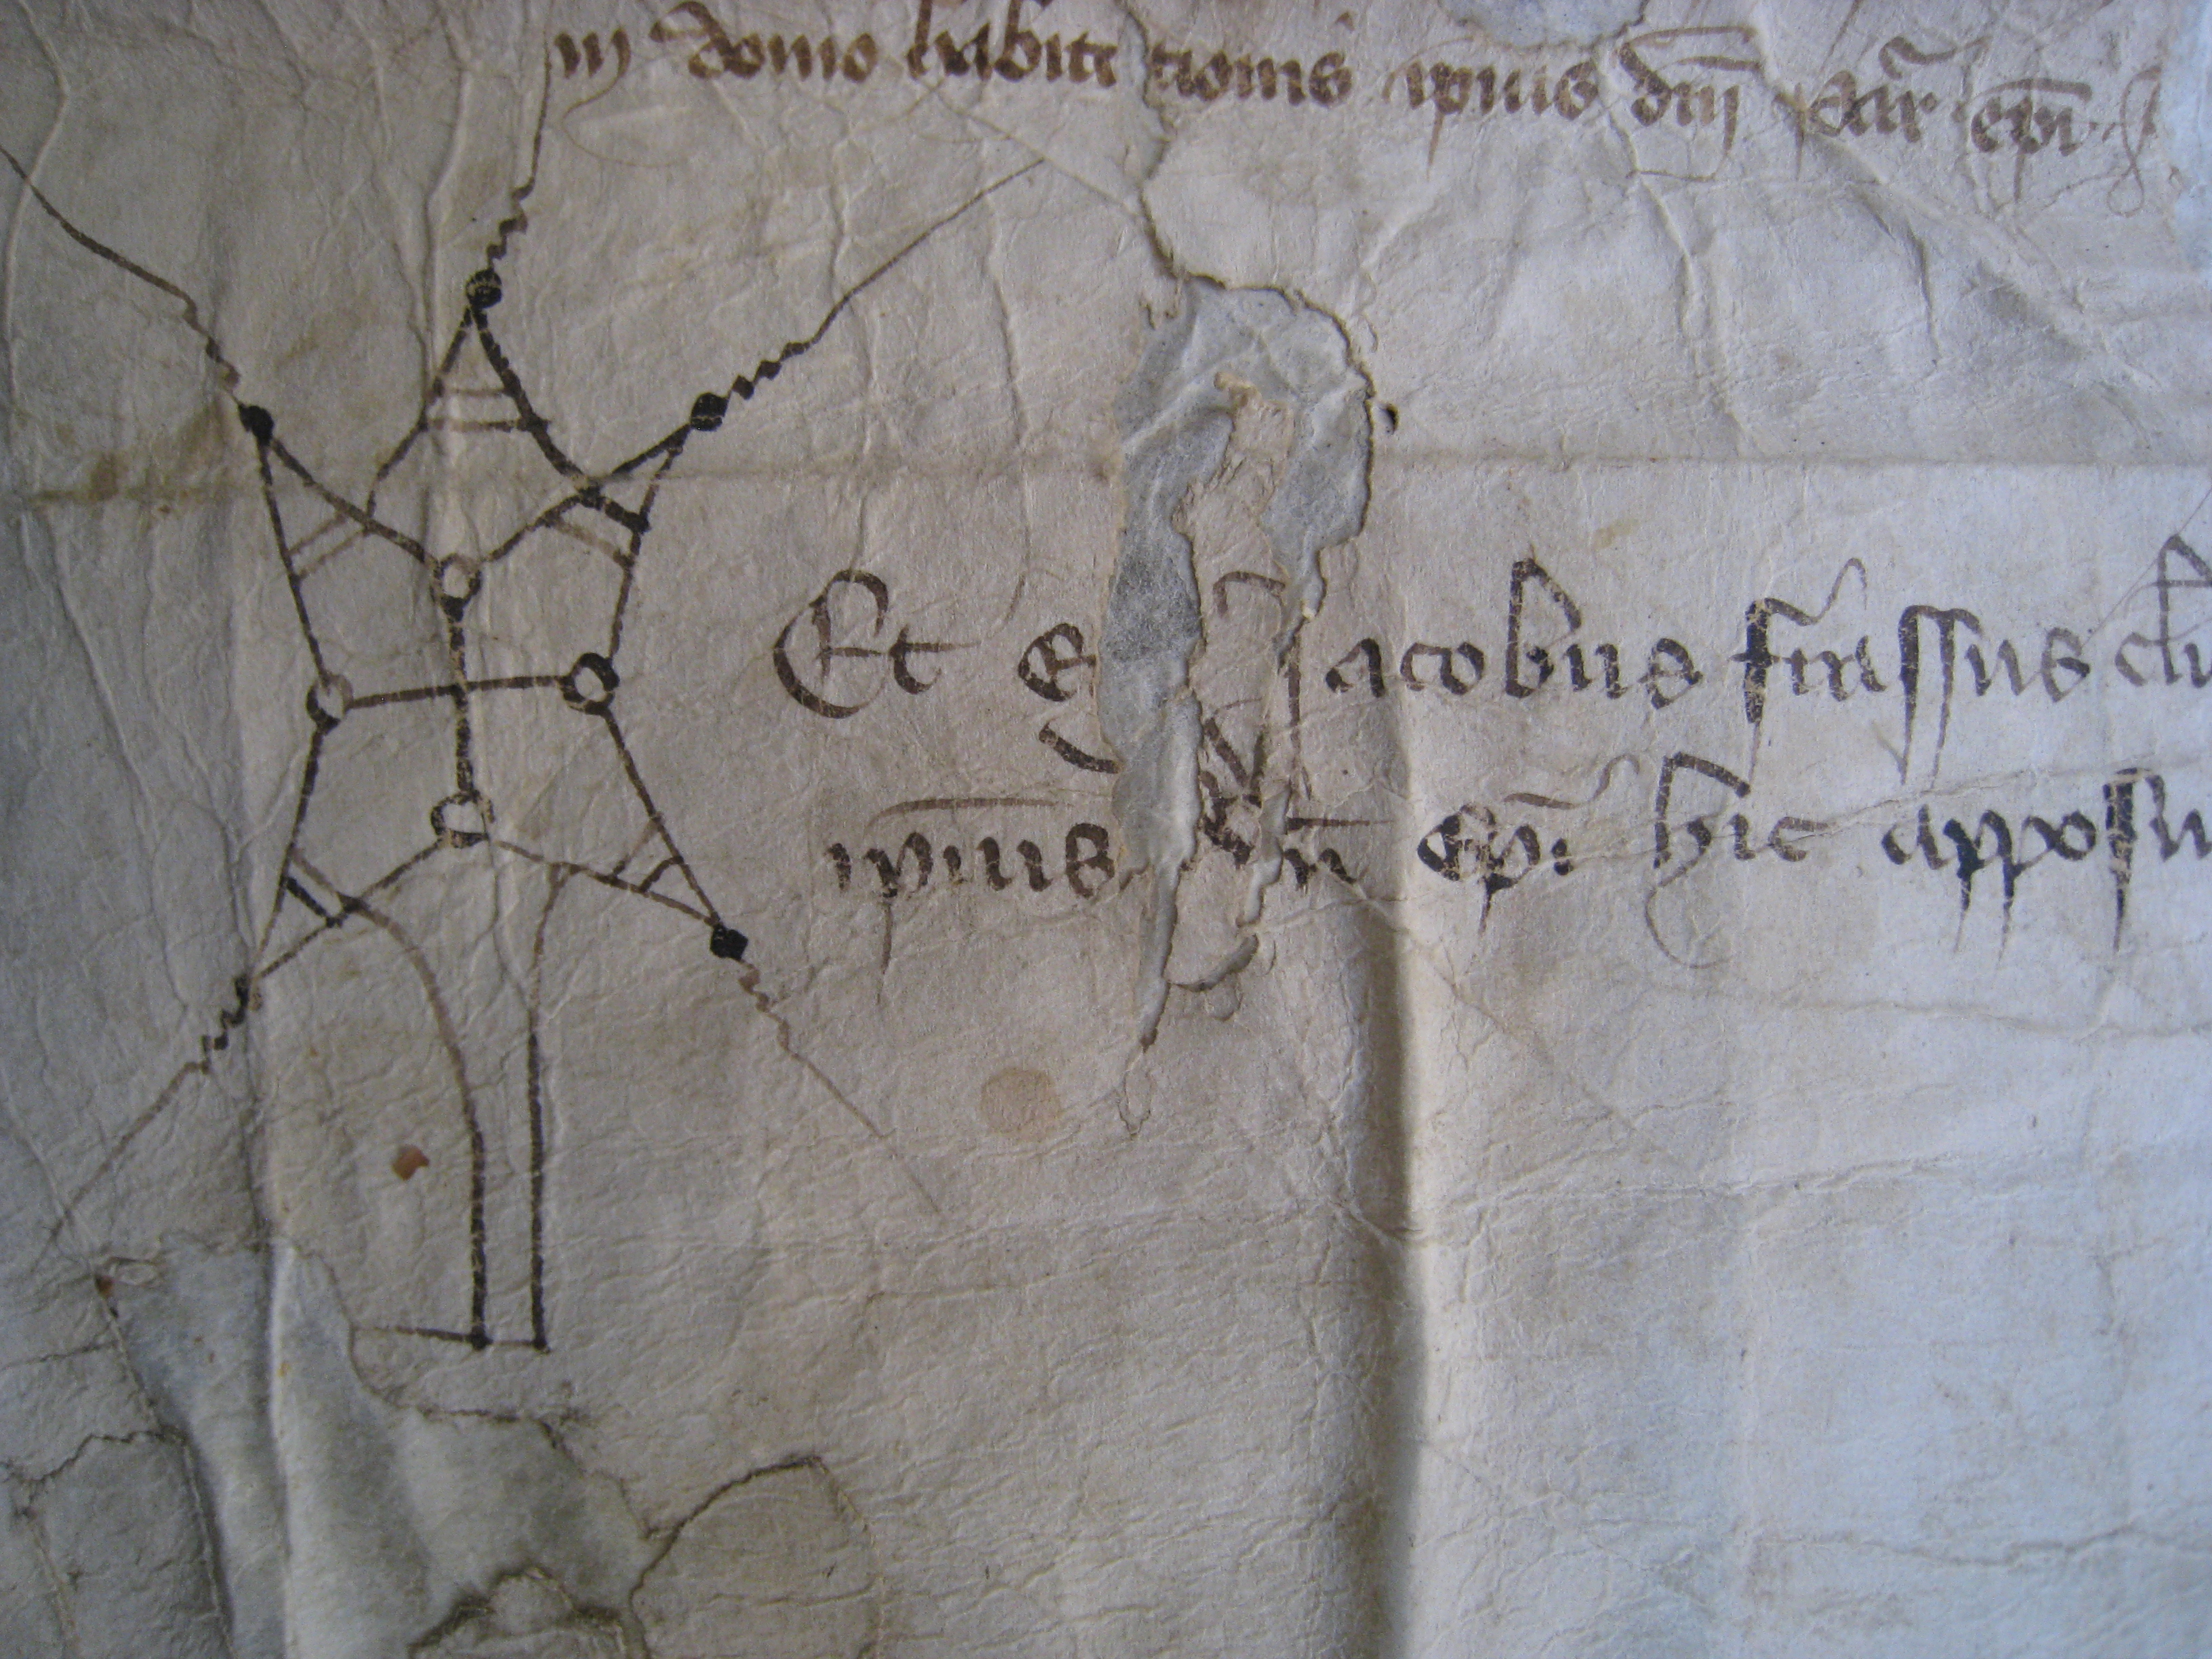 in domo habitationis ip̄ius dn̄j ep̄i
Et eg Jacobus
ip̄ius ep̄i hic apposu